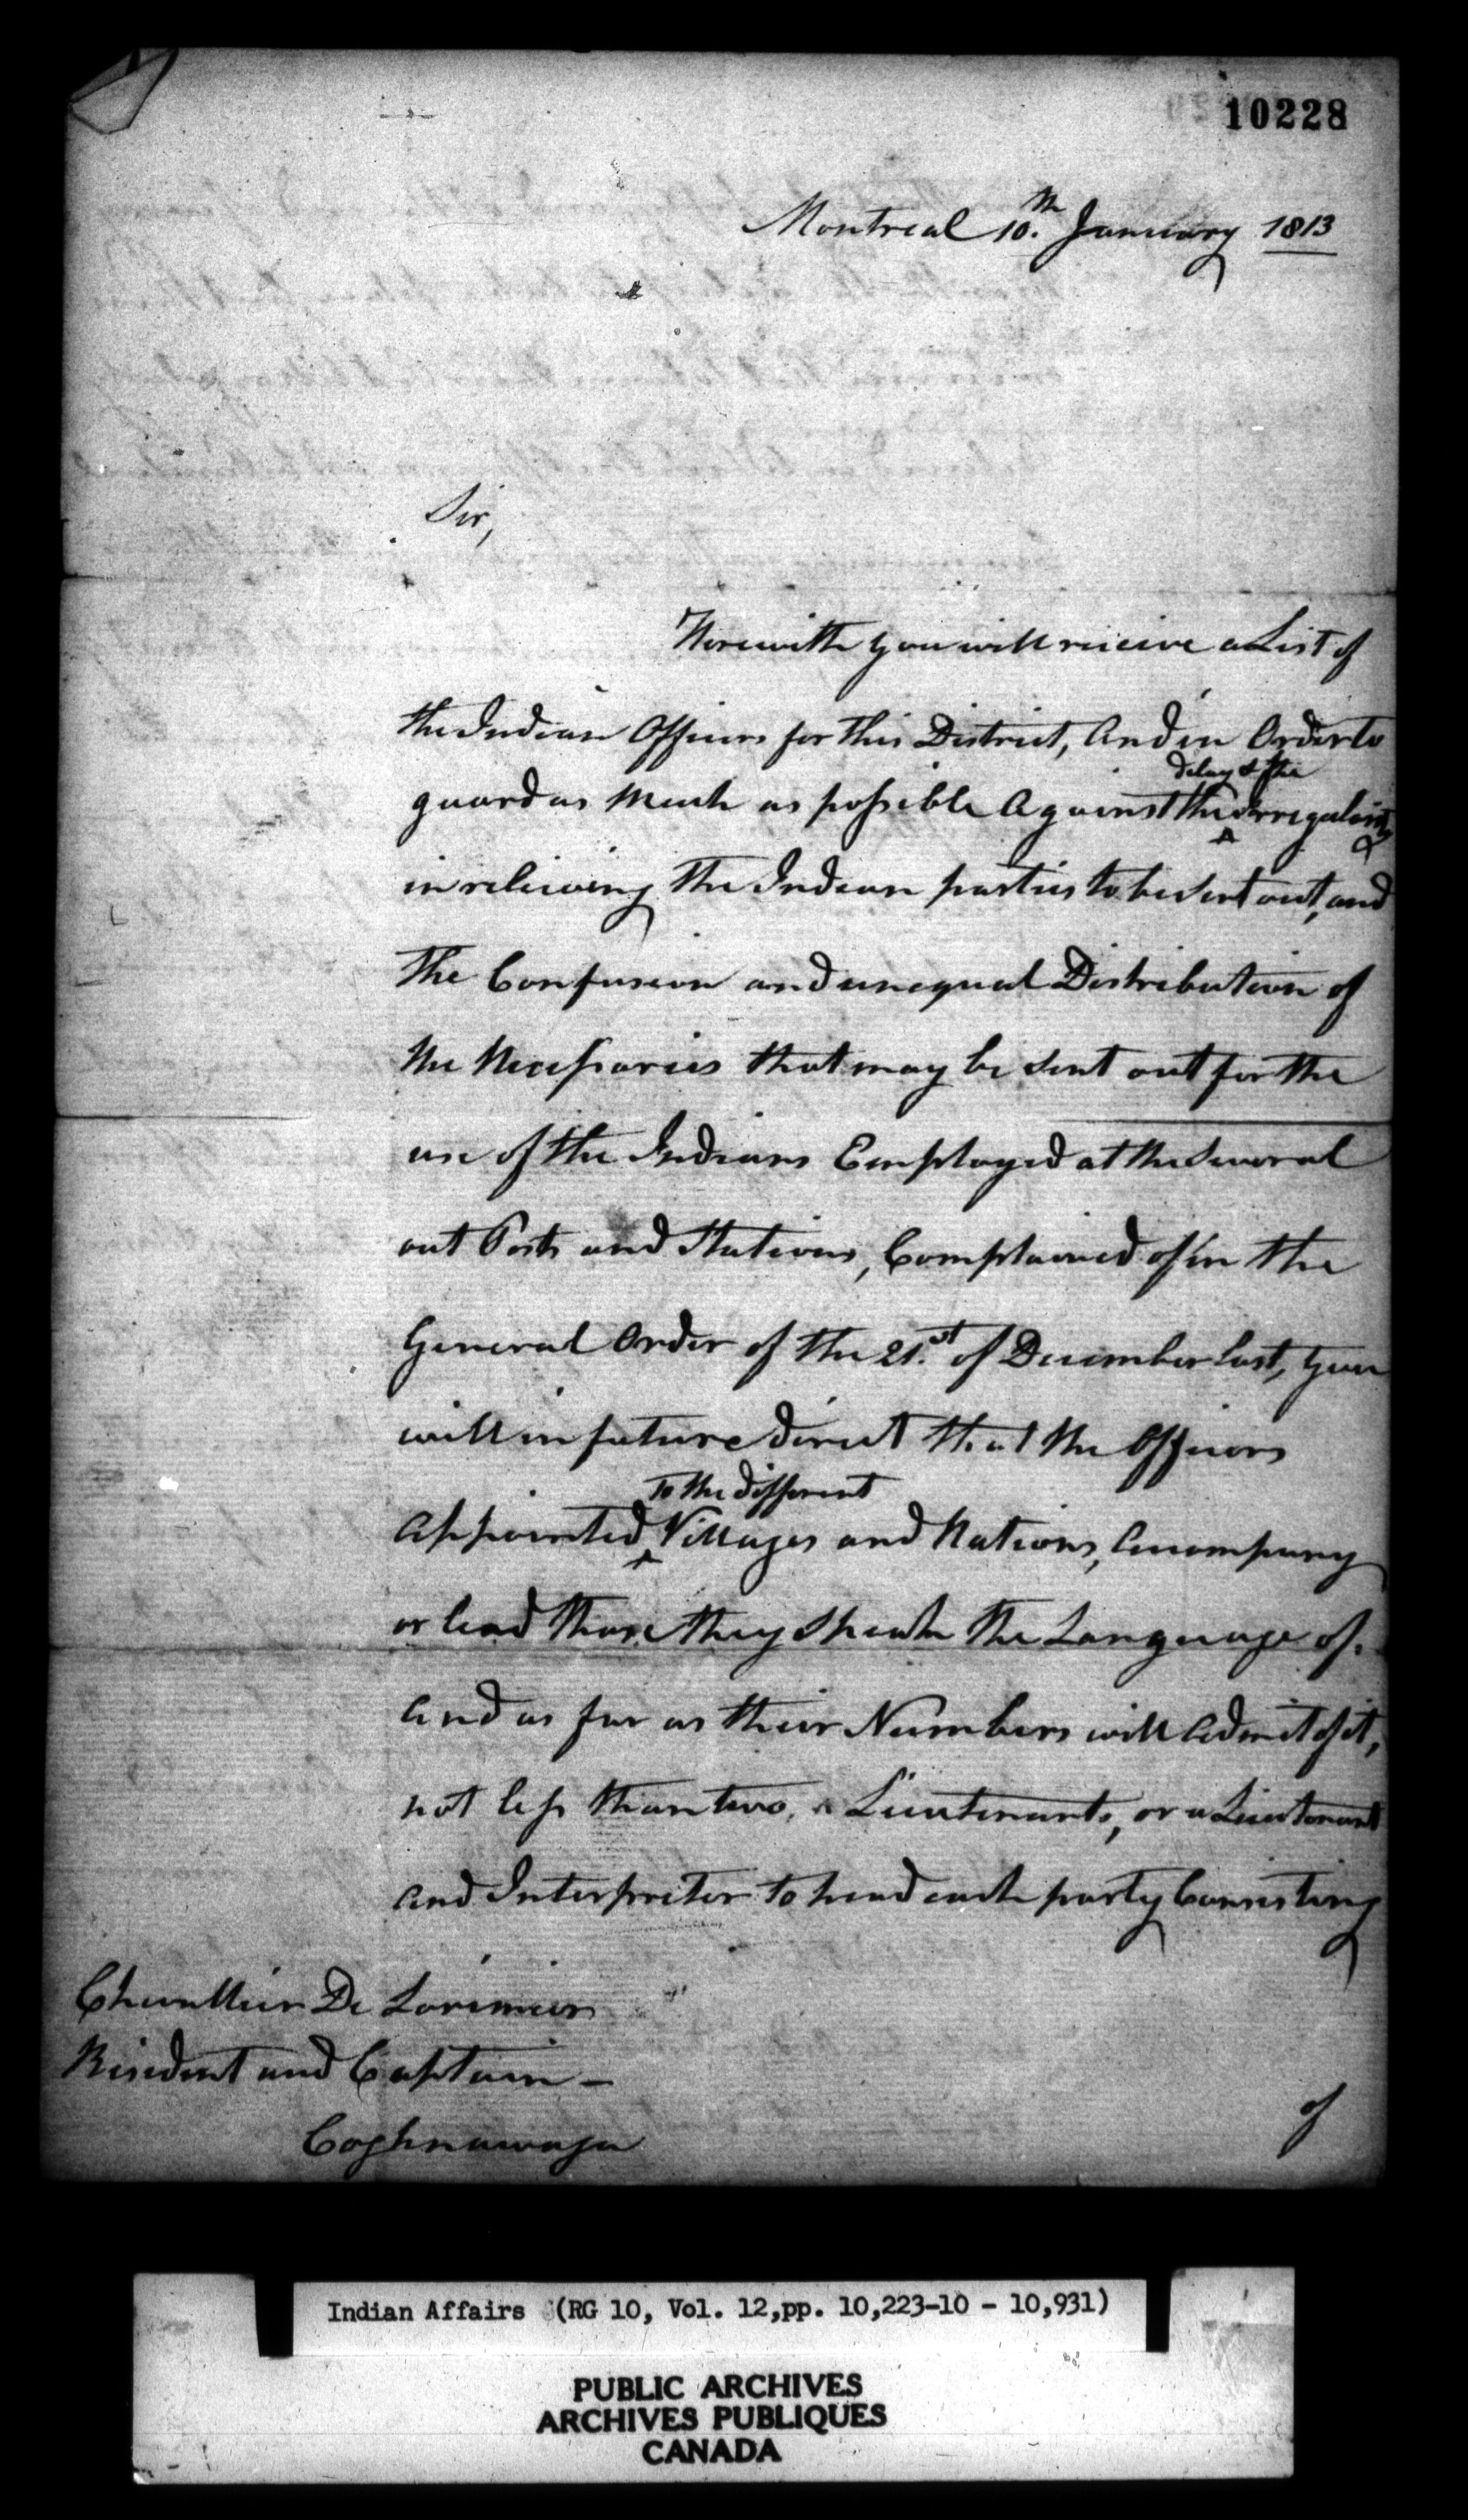 10228
Montreal 10.th January 1813
Sir,
Herewith you will receive a List of
the Indian Officers for this District, And in Order to
delay & the
guard as Much as possible Against the Irregularity
in relieving the Indian parties to be sent out, and
the Confusion and unequal Distribution of
the Necessaries that may be sent out for the
use of the Indians Employed at the Several
out Posts and Stations, Complained of in the
General Order of the 21.st of December last, you
will in future direct that the Officers
to the different
Appointed Villages and Nations, Accompany
or lead those they Speak the Language of.
And as far as their Numbers will Admit of it,
not less than two Lieutenants, or a Lieutenant
and Interpreter to head each party Consisting
of
Chevallier De Lorimier
Resident and Captain —
Coghnawaga
Indian Affairs (RG 10, Vol. 12,pp. 10,223-10 - 10,931)
PUBLIC ARCHIVES
ARCHIVES PUBLIQUES
CANADA